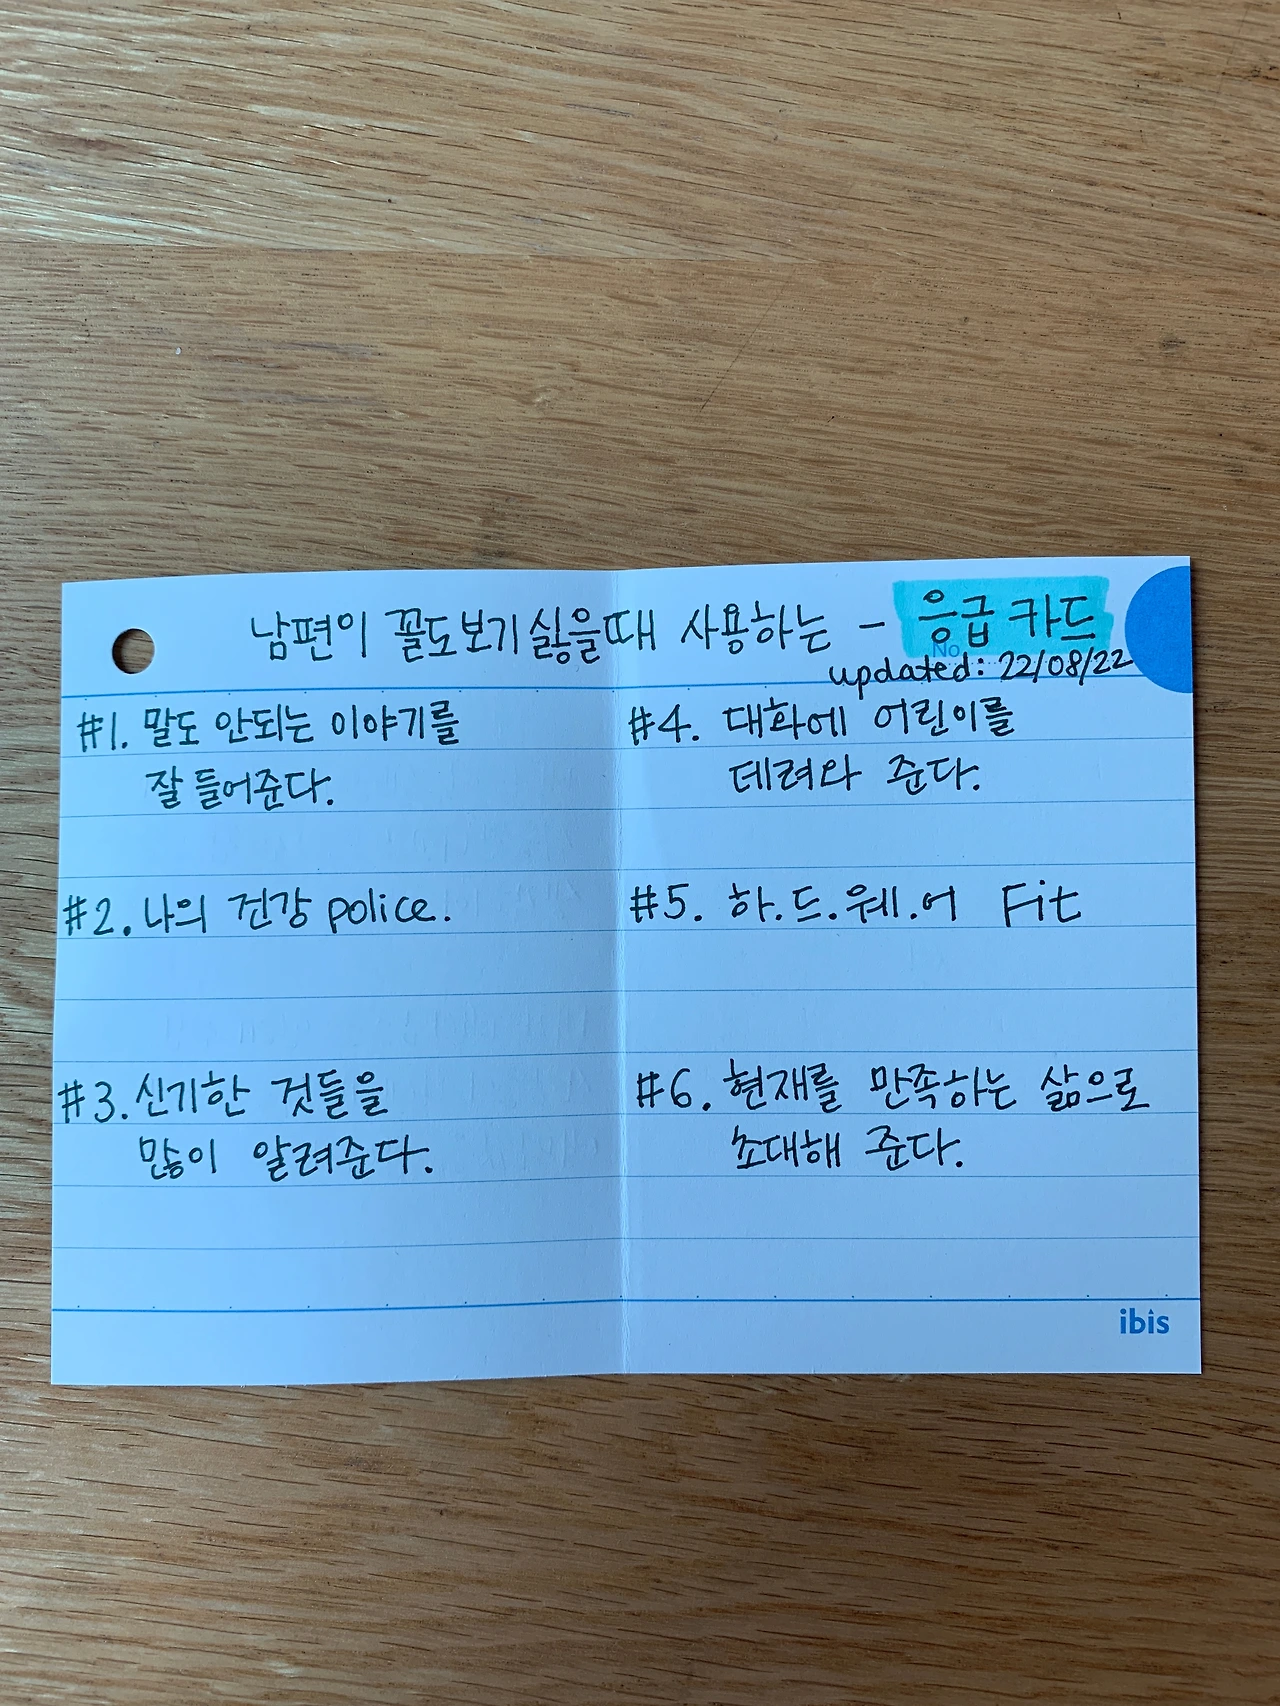 남편이 꼴도보기싫을때 사용하는 - 응급 카드
No
updated: 22/08/22
#1. 말도 안되는 이야기를
잘 들어준다.
#2. 나의 건강 police.
#3. 신기한 것들을
많이 알려준다.
#4. 대화에 어린이를
데려와 준다.
#5. 하.드.웨.어 Fit
#6. 현재를 만족하는 삶으로
초대해 준다.
ibis